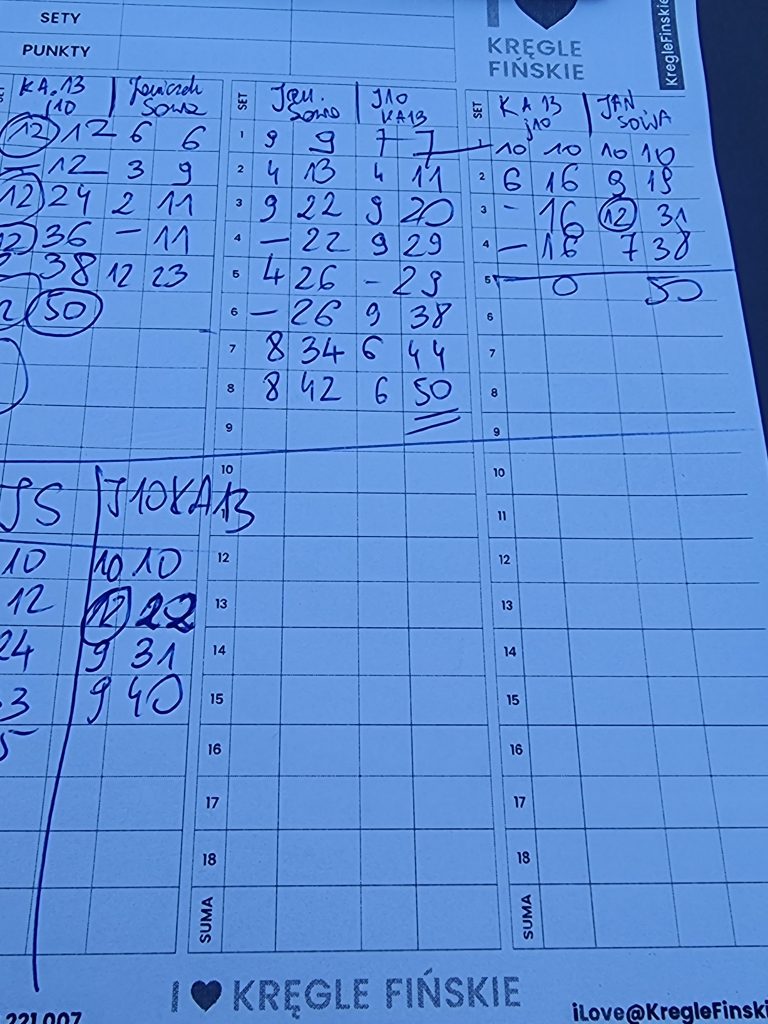 SETY
PUNKTY
I
KRĘGLE
FIŃSKIE
KregleFinskie
KA.13 J10
SOWA
12 12 6 6
- 12 3 9
12 24 2 11
12 36 - 11
38 12 23
50
SET
JAN. SOWA
J10 KA13
1 9 9 7 7
2 4 13 4 11
3 9 22 9 20
4 - 22 9 29
5 4 26 - 29
6 - 26 9 38
7 8 34 6 44
8 8 42 6 50
9
10
12
13
14
15
16
17
18
SUMA
SET
KA 13 J10
JAN SOWA
1 10 10 10 10
2 6 16 9 19
3 - 16 12 31
4 - 16 7 38
5 0 50
6
7
8
9
10
11
12
13
14
15
16
17
18
SUMA
JS J10KA13
10 10 10
12 12 22
24 9 31
3 9 40
5
I KRĘGLE FIŃSKIE
221 007
iLove@KregleFinski